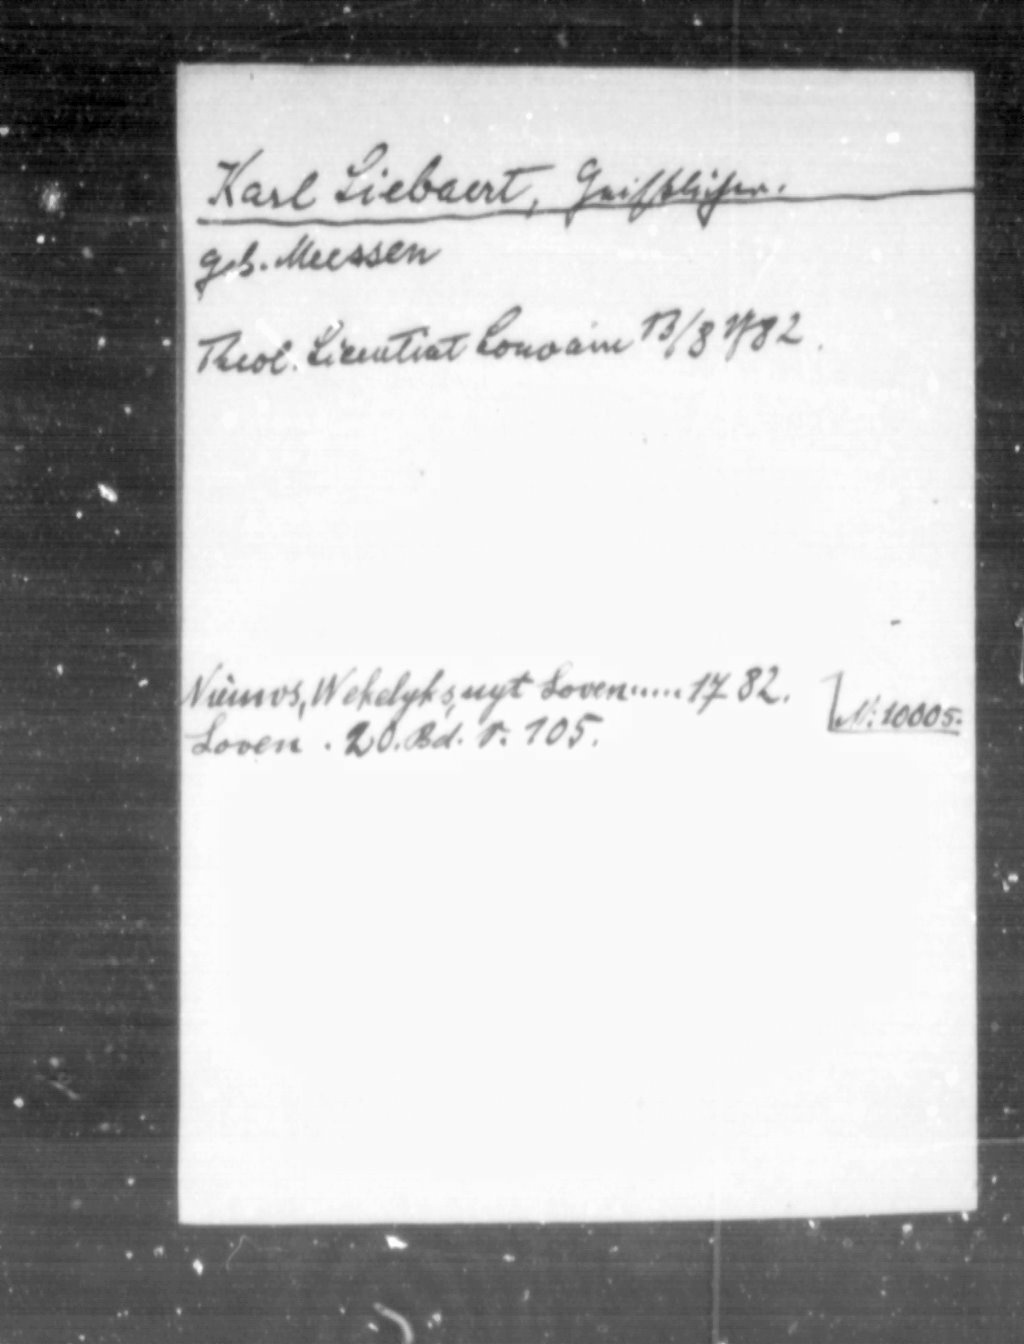 Karl Liebaert, Geistlicher.
geb. Meessen
Theol. Licentiat Louvain 13/8 1782.
Nieuws, Wekelyks, uyt Loven..... 1782.
Loven. 20. Bd. P. 105.
N: 10005.